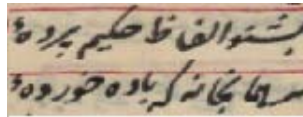 بشنو الفاظ حکیم پردهٔ
سر همانجا نه که باده خوردهٔ